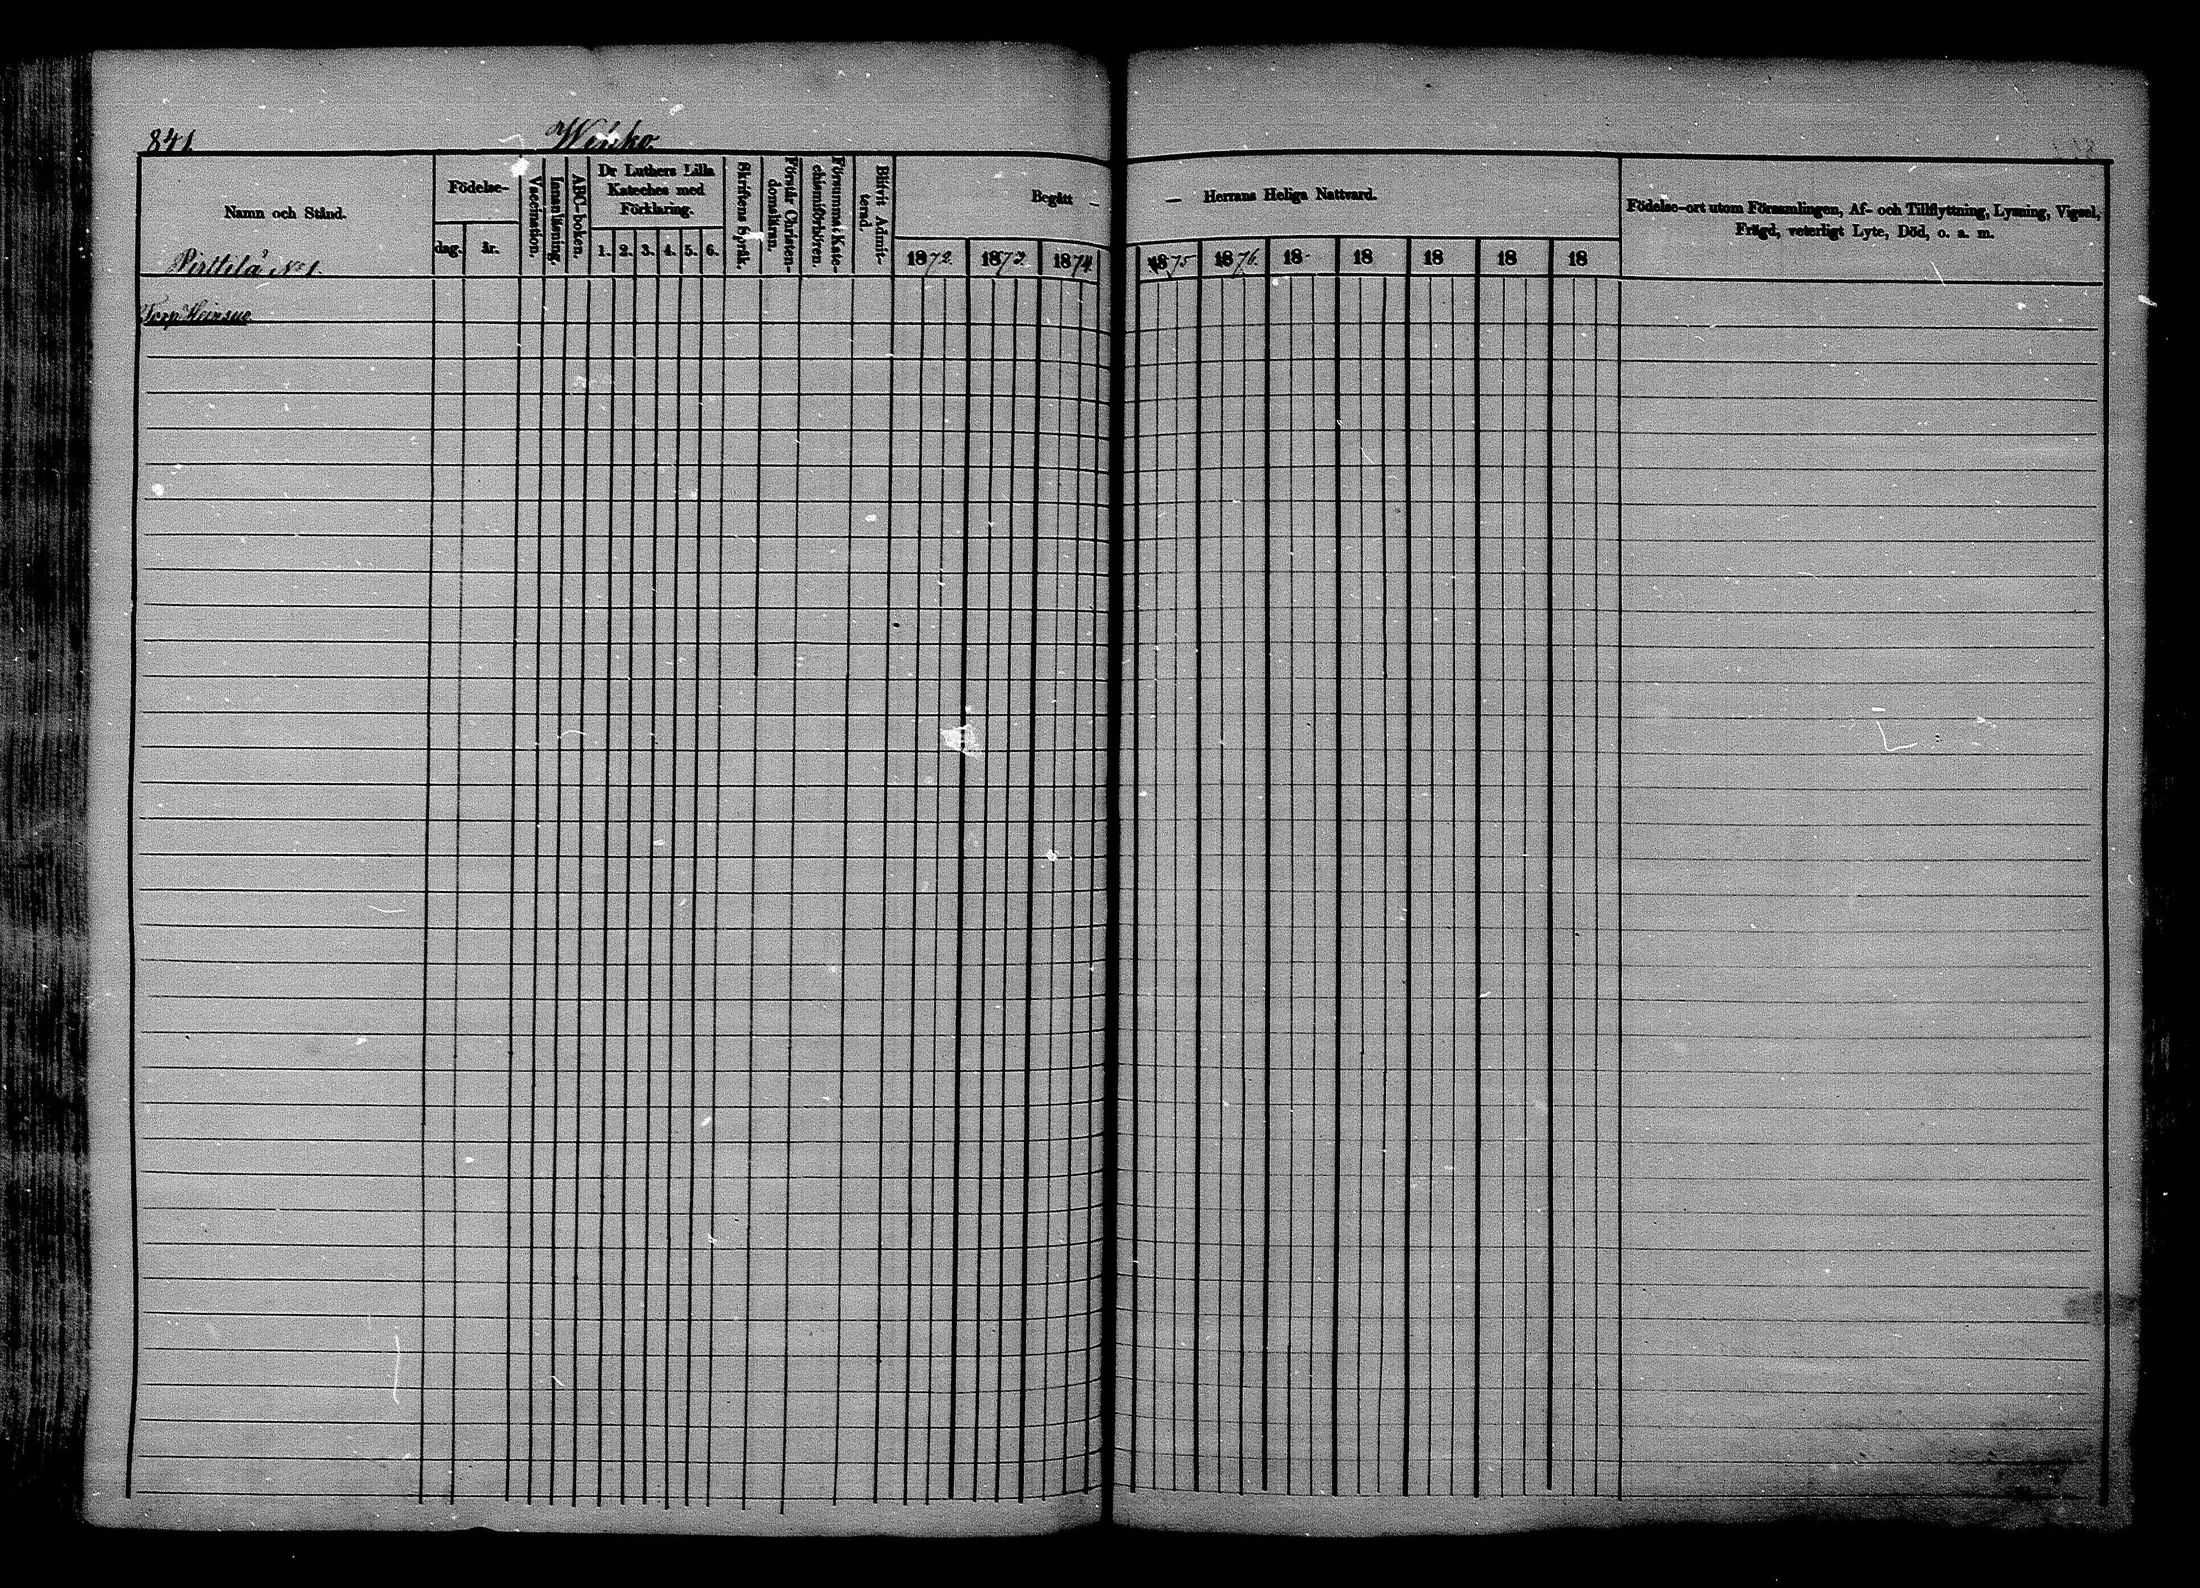 841.
Namn och Stånd.
Pirttilä No 1.
Födelse-
dag.
år.
Vaccination.
Innanläsning.
ABC-boken.
Dr Luthers Lilla
Kateches med
Förklaring.
1. 2. 3. 4. 5. 6.
Skriftens Språk.
Förstår Christen-
domsläran.
Försummat Kate-
chismiförhören.
Blifvit Admit-
terad.
Begått —
1872. 1873. 1874.
— Herrans Heliga Nattvard.
1875 1876. 18 18 18 18 18
Födelse-ort utom Församlingen, Af- och Tillflyttning, Lysning, Vigsel,
Frägd, veterligt Lyte, Död, o. s. m.
Torp